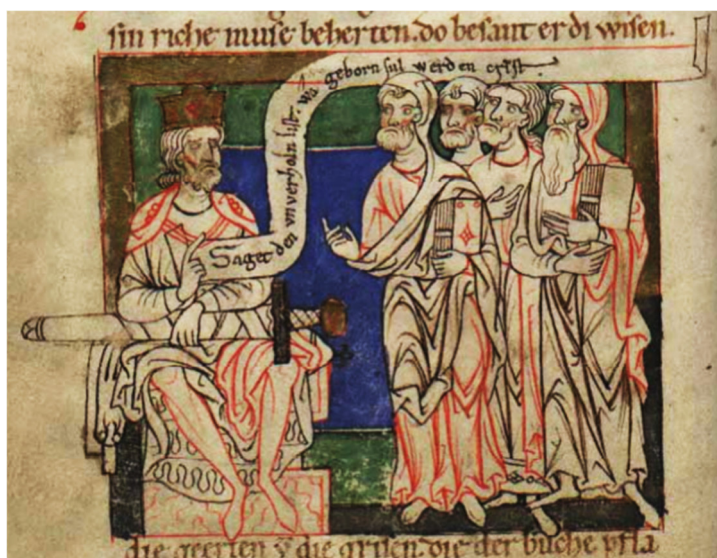 sin riche muse beherten. do besant er di wisen.
Saget den vnverholn list. wa geborn sul werden crist.
die geerten v̄ die grisen. die der buche pfla